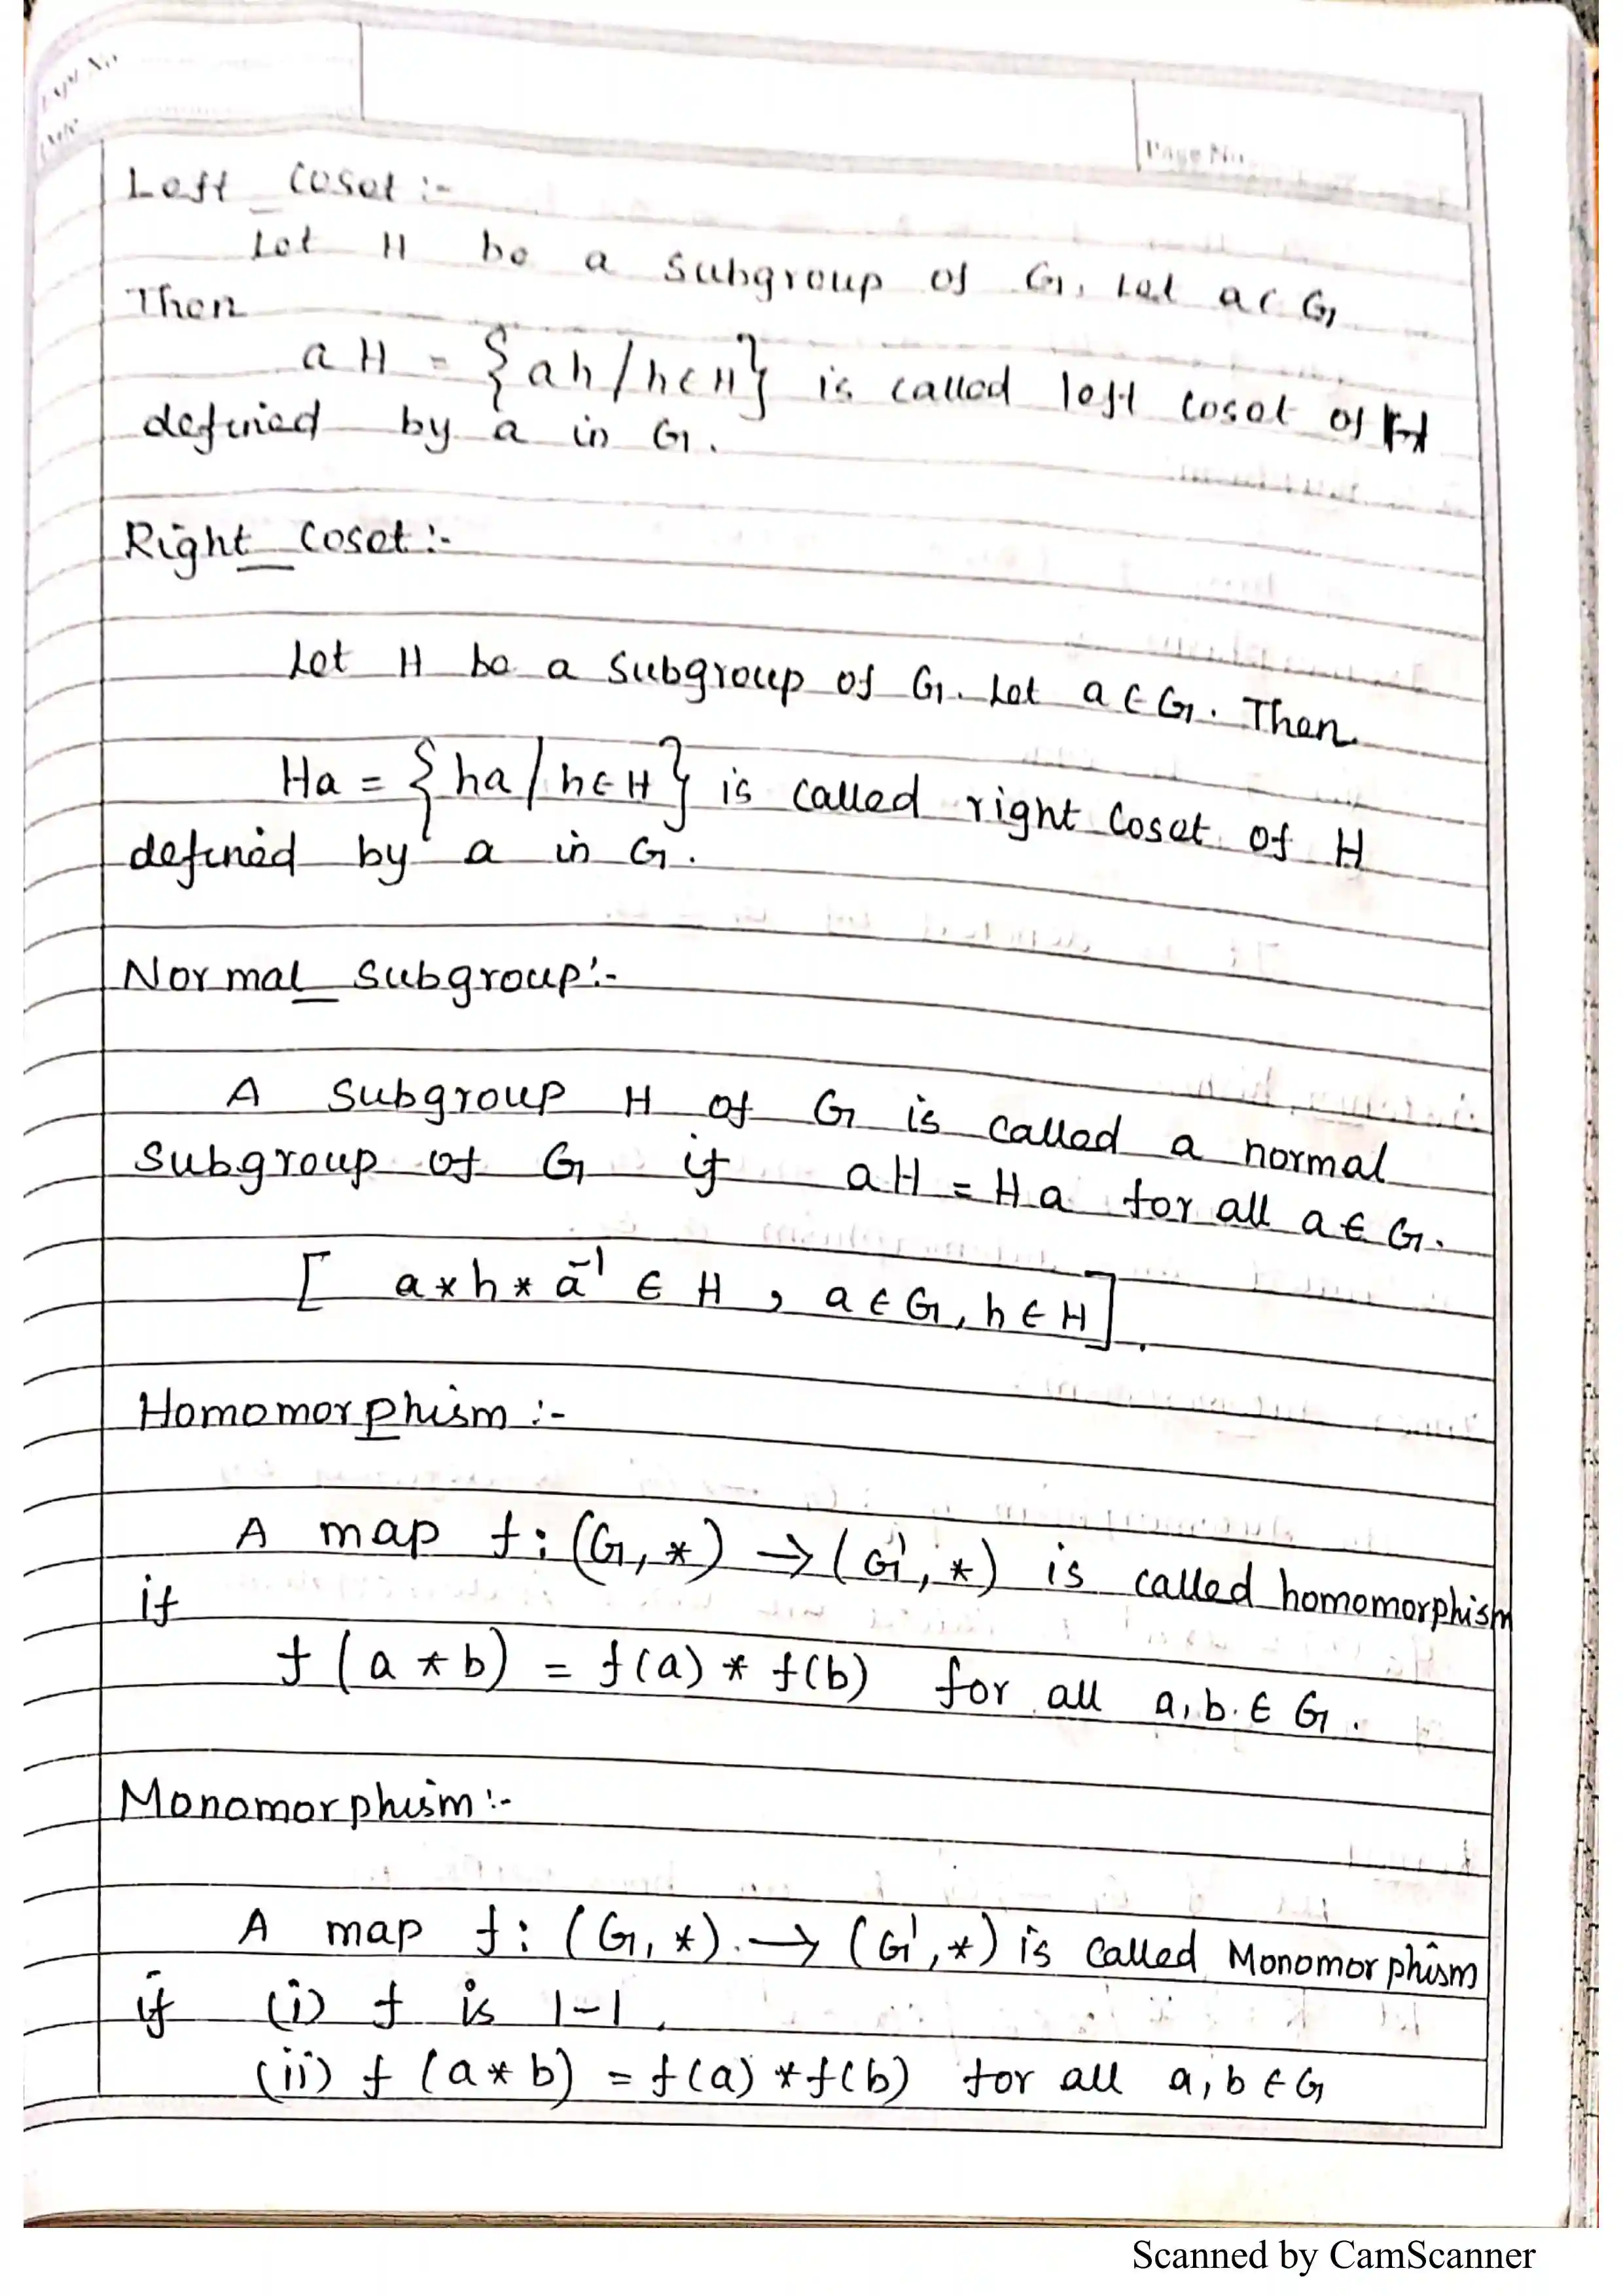 Expt. No.
Date
Page No.
Left coset :-
Let H be a subgroup of G, Let a ∈ G,
Then
aH = {ah / h ∈ H} is called left coset of H
defined by a in G.
Right coset :-
Let H be a subgroup of G. Let a ∈ G. Then
Ha = {ha / h ∈ H} is called right coset of H
defined by a in G.
Normal subgroup :-
A subgroup H of G is called a normal
subgroup of G if aH = Ha for all a ∈ G.
[ a * h * a⁻¹ ∈ H , a ∈ G, h ∈ H ].
Homomorphism :-
A map f : (G, *) → (G', *) is called homomorphism
if
f (a * b) = f(a) * f(b) for all a, b ∈ G.
Monomorphism :-
A map f : (G, *) → (G', *) is called Monomorphism
if (i) f is 1-1.
(ii) f (a * b) = f(a) * f(b) for all a, b ∈ G
Scanned by CamScanner